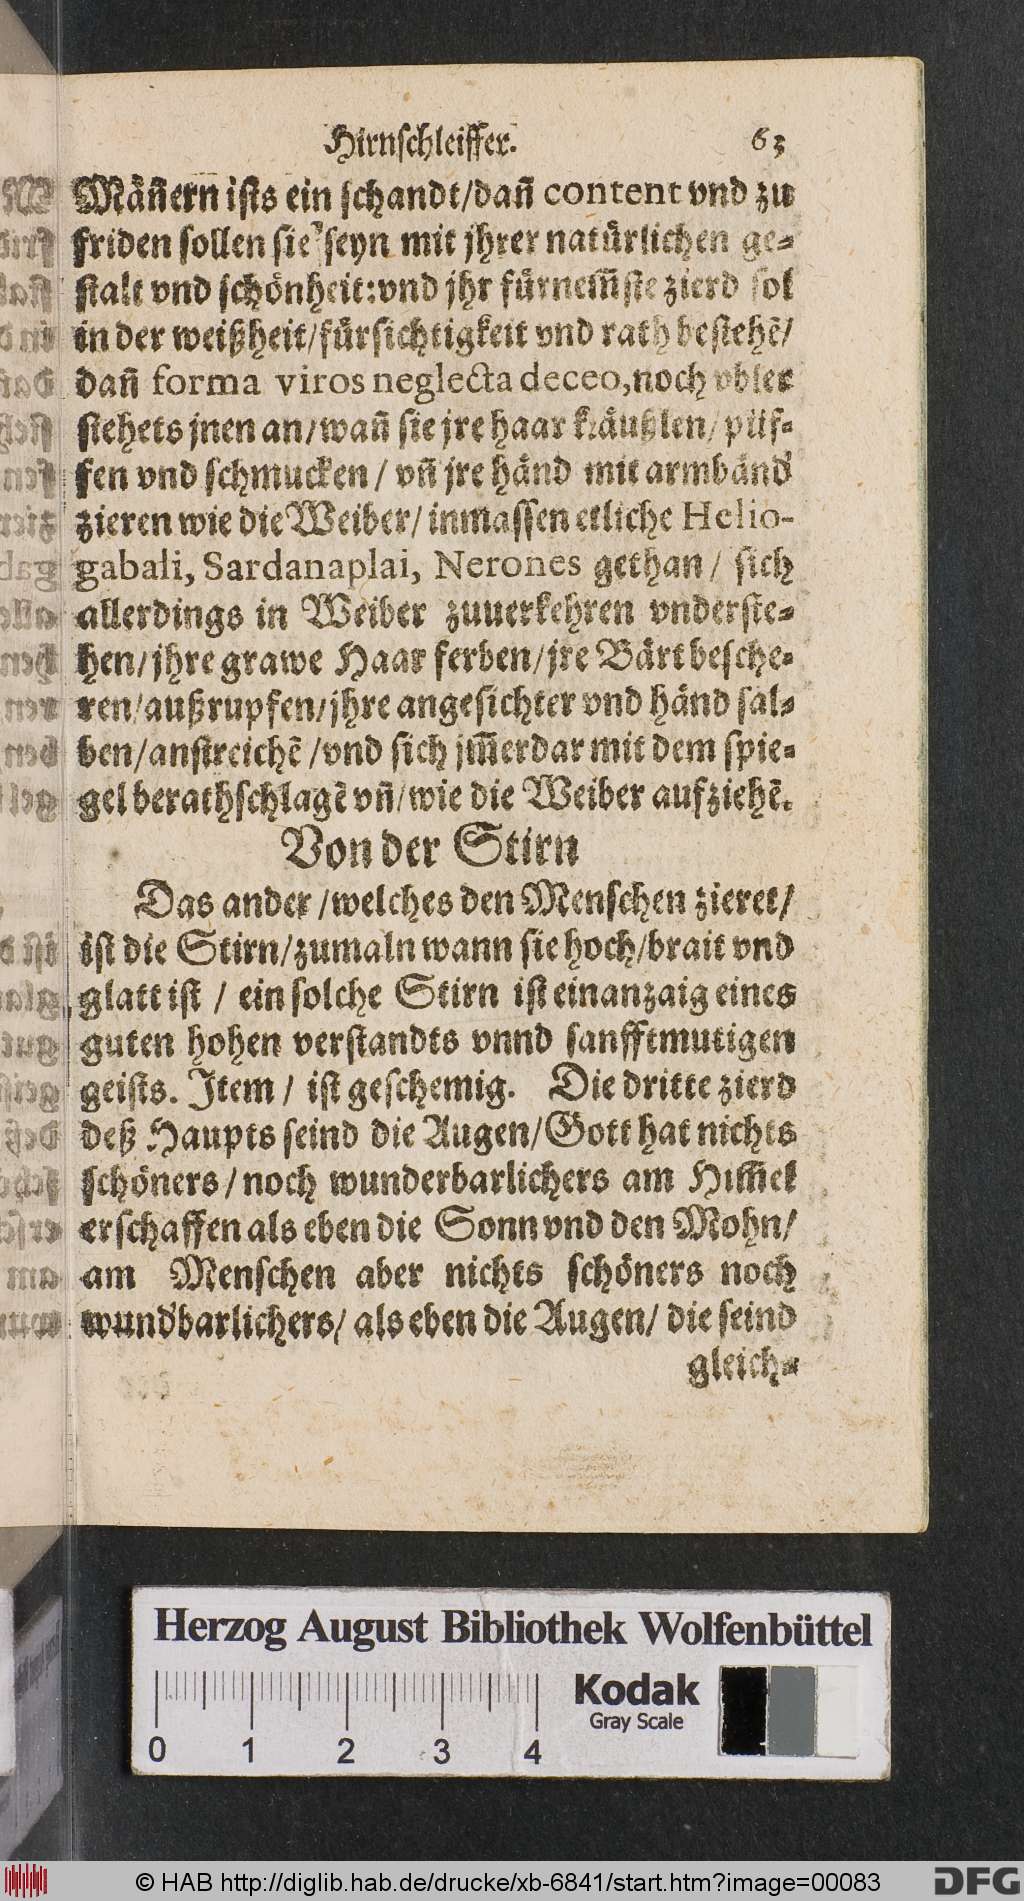 Hirnschleiffer. 63
Mäñern ists ein schandt/dañ content vnd zu
friden sollen sie seyn mit jhrer natürlichen ge-
stalt vnd schönheit: vnd jhr fürnem̃ste zierd sol
in der weißheit/fürsichtigkeit vnd rath bestehẽ/
dañ forma viros neglecta deceo, noch vbler
stehets jnen an/wañ sie jre haar kräußlen/ püf-
fen vnd schmucken / vñ jre händ mit armbänd'
zieren wie die Weiber/ inmassen etliche Helio-
gabali, Sardanaplai, Nerones gethan / sich
allerdings in Weiber zuuerkehren vnderste-
hen/jhre grawe Haar ferben/jre Bärt besche-
ren/außrupfen/jhre angesichter vnd händ sal-
ben/anstreichẽ /vnd sich jm̃erdar mit dem spie-
gel berathschlagẽ vñ/wie die Weiber aufziehẽ.
Von der Stirn
Das ander /welches den Menschen zieret/
ist die Stirn/zumaln wann sie hoch/brait vnd
glatt ist / ein solche Stirn ist ein anzaig eines
guten hohen verstandts vnnd sanfftmutigen
geists. Item / ist geschemig. Die dritte zierd
deß Haupts seind die Augen/Gott hat nichts
schöners / noch wunderbarlichers am Him̃el
erschaffen als eben die Sonn vnd den Mohn/
am Menschen aber nichts schöners noch
wund'barlichers/ als eben die Augen/ die seind
gleich-
Herzog August Bibliothek Wolfenbüttel
Kodak
Gray Scale
0 1 2 3 4
© HAB http://diglib.hab.de/drucke/xb-6841/start.htm?image=00083
DFG